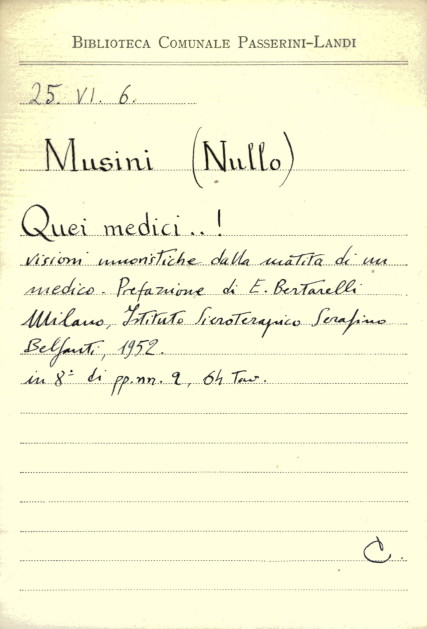 BIBLIOTECA COMUNALE PASSERINI-LANDI
25. VI. 6.
Musini (Nullo)
Quei medici..!
visioni umoristiche dalla matita di un
medico. Prefazione di E. Bertarelli
Milano, Istituto Sieroterapico Serafino
Belfanti, 1952.
in 8º di pp.nn. 9, 64 Tav.
C.